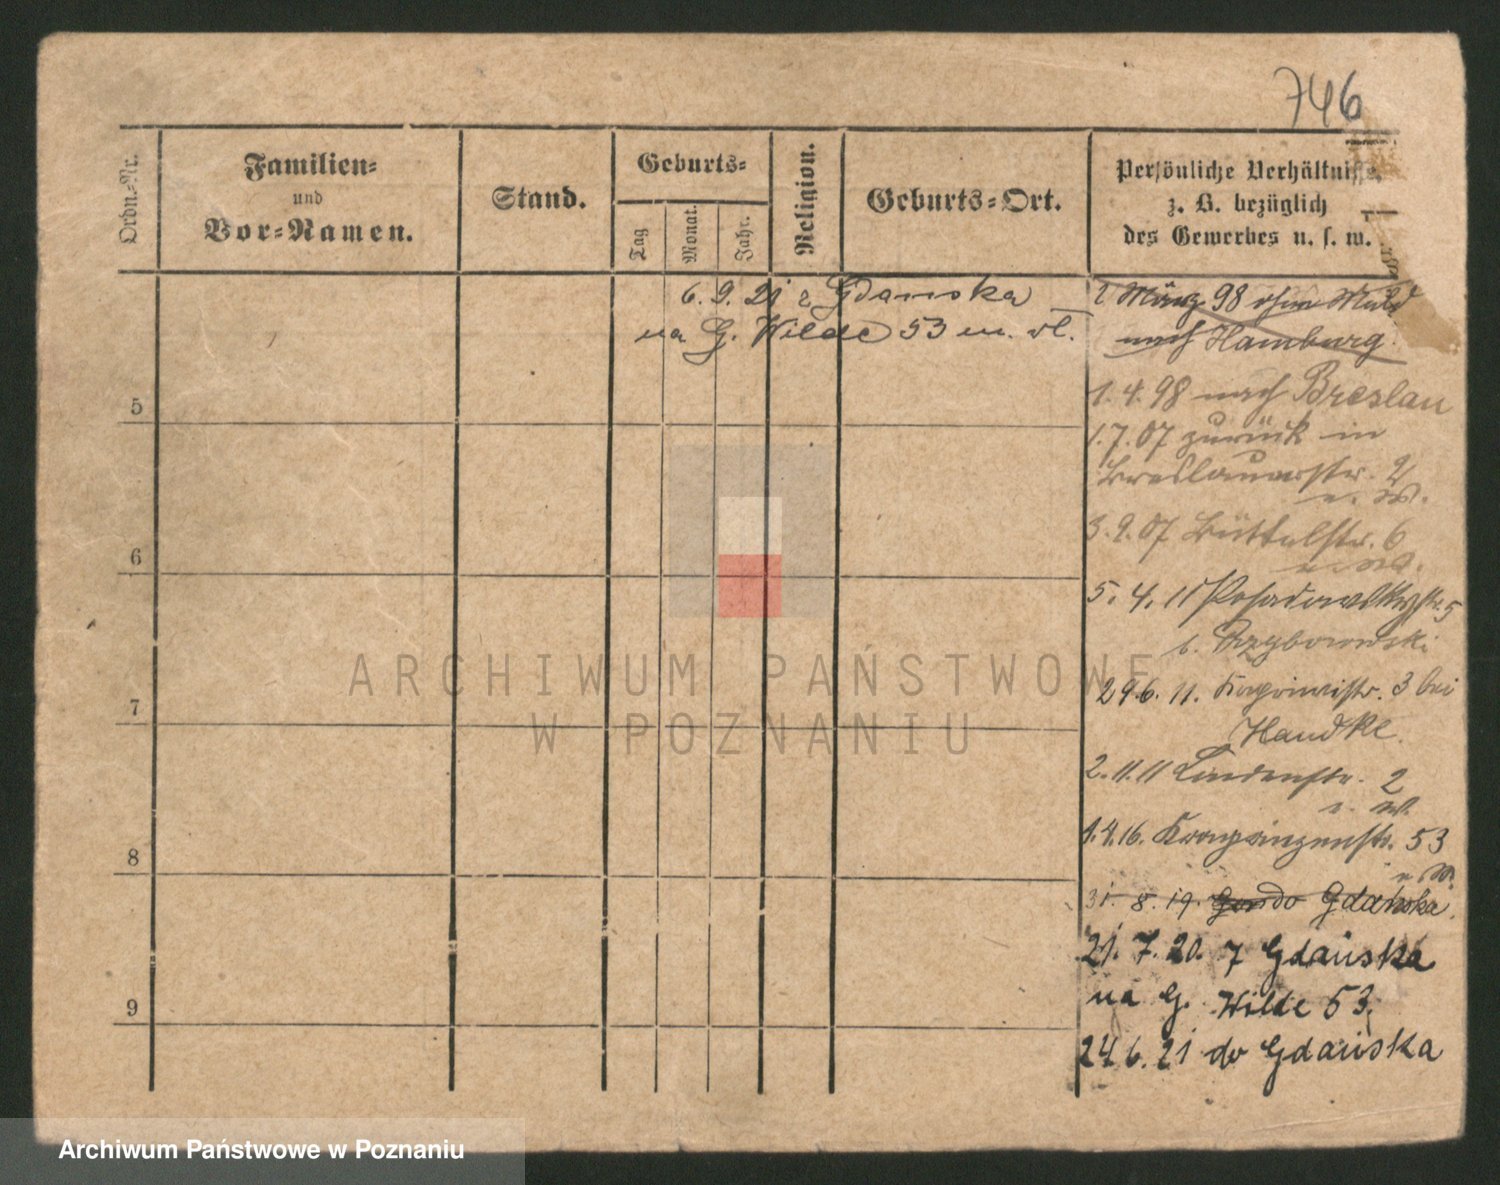 746
Ordn.-Nr.
Familien-
und
Vor-Namen.
Stand.
Geburts-
Tag
Monat.
Jahr.
Religion.
Geburts-Ort.
Persönliche Verhältnisse,
z. B. bezüglich
des Gewerbes u. s. w.
6. 9. 21 z Gdanska
na G. Wilde 53 m. wł.
2 März 98 ohne
nach Hamburg.
1. 4. 98 nach Breslau
1. 7. 07 zurück in
Breslauerstr. 2
e. W.
3. 9. 07 Büttelstr. 6
e. W.
5. 4. 11 Posadowskystr. 5
b. Przyborowski
29.6. 11. 3 bei
Handke.
2. 11. 11 Lindenstr. 2
e. W.
1. 4. 16. Kronprinzenstr. 53
e. W.
31. 8. 19. do Gdańska.
21. 7. 20. z Gdańska
na G. Wilde 53.
24. 6. 21 do Gdańska
5
6
7
8
9
ARCHIWUM PAŃSTWOWE
W POZNANIU
Archiwum Państwowe w Poznaniu